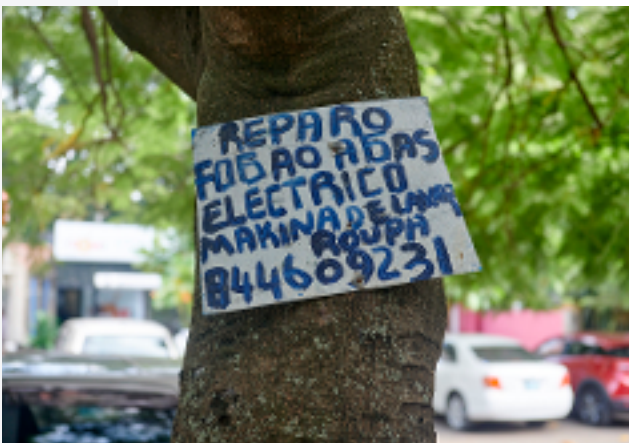 REPARO
FOBAO ADAS
ELECTRICO
MAKINA DE LAVAR
ROUPA
844609231